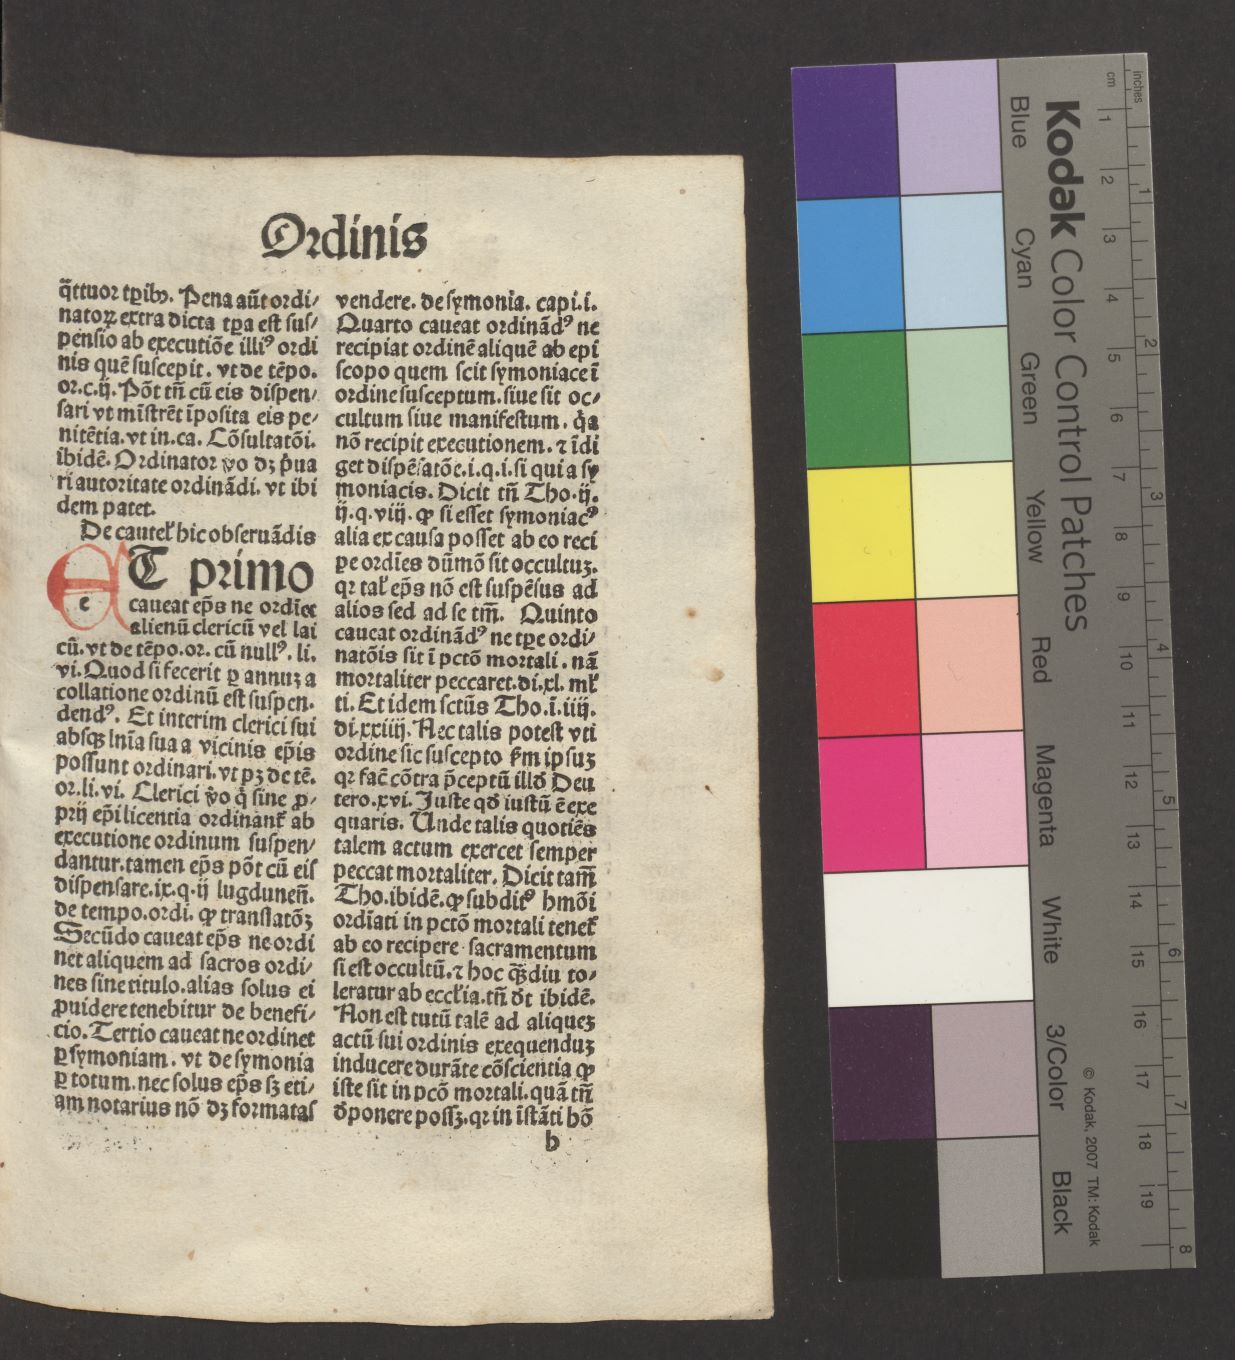 Ordinis
q̄ttuor tꝑibꝰ. Pena aūt ordi/
natoꝝ extra dicta tꝑa est sus/
pensio ab executiōe illiꝰ ordi
nis quē suscepit. vt de tēpo.
or.c.ij. Pōt tn̄ cū eis dispen/
sari vt mīstrēt īposita eis pe/
nitētia. vt in.ca. Cōsultatōi.
ibidē. Ordinator v̓o dꝫ p̄ua
ri autoritate ordinādi. vt ibi
dem patet.
De cautel̓ hic obseruādis
eT primo
caueat ep̄s ne ordīet
alienū clericū vel lai
cū. vt de tēpo. or. cū nullꝰ. li.
vi. Quod si fecerit ꝑ annuꝫ a
collatione ordinū est suspen.
dendꝰ. Et interim clerici sui
absqꝫ lnīa sua a vicinis ep̄is
possunt ordinari. vt pꝫ de tē.
or. li. vi. Clerici v̓o q̇ sine ꝓ/
prij ep̄i licentia ordinant̓ ab
executione ordinum suspen/
dantur. tamen ep̄s pōt cū eis
dispensare. ix. q. ij lugdunen̄.
de tempo. ordi. ꝙ translatōꝫ
Secūdo caueat ep̄s ne ordi
net aliquem ad sacros ordi/
nes sine titulo. alias solus ei
ꝓuidere tenebitur de benefi/
cio. Tertio caueat ne ordinet
ꝑ symoniam. vt de symonia
ꝑ totum. nec solus ep̄s sꝫ eti/
am notarius nō dꝫ formatas
vendere. de symonia. capi. i.
Quarto caueat ordinādꝰ ne
recipiat ordinē aliquē ab epi
scopo quem scit symoniace ī
ordine susceptum. siue sit oc/
cultum siue manifestum. q̇a
nō recipit executionem. ⁊ īdi
get dispēsatōe. i. q. i. si qui a sy
moniacis. Dicit tn̄ Tho. ij.
ij. q. viij. ꝙ si esset symoniacꝰ
alia ex causa posset ab eo reci
pe ordīes dūmō sit occultuꝫ.
qr tal̓ ep̄s nō est suspēsus ad
alios sed ad se tm̄. Quinto
caueat ordinādꝰ ne tꝑe ordi/
natōis sit ī pctō mortali. nā
mortaliter peccaret. di. xl. ml̓
ti. Et idem sctūs Tho. ī. iiij.
di. xxiiij. Nec talis potest vti
ordine sic suscepto ẜm ipsuꝫ
qr fac̄ cōtra p̄ceptū illḋ Deu
tero. xvi. Juste qḋ iustū ē exe
quaris. Unde talis quotiēs
talem actum exercet semper
peccat mortaliter. Dicit tam̄
Tho. ibidē. ꝙ subditꝰ hmōi
ordīati in pctō mortali tenet̓
ab eo recipere sacramentum
si est occultū. ⁊ hoc qͣꝫdiu to/
leratur ab eccl̓ia. tn̄ ḋt ibidē.
Non est tutū talē ad aliqueꝫ
actū sui ordinis exequenduꝫ
inducere durāte cōscientia ꝙ
iste sit in pcō mortali. quā tn̄
ḋponere possꝫ. qr in īstāti hō
b
Kodak Color Control Patches
inches
cm
1 2 3 4 5 6 7 8 9 10 11 12 13 14 15 16 17 18 19
1 2 3 4 5 6 7 8
Blue Cyan Green Yellow Red Magenta White 3/Color Black
© Kodak, 2007 TM: Kodak